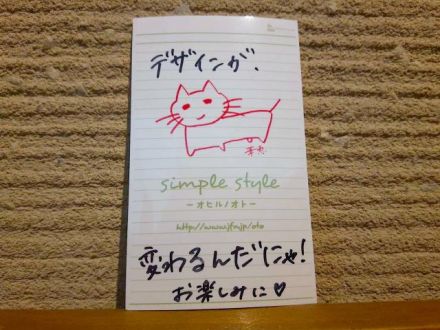 デザインが、
simple style
－オヒルノオト－
http://www.jfn.jp/oto
変わるんだにゃ!
お楽しみに♡